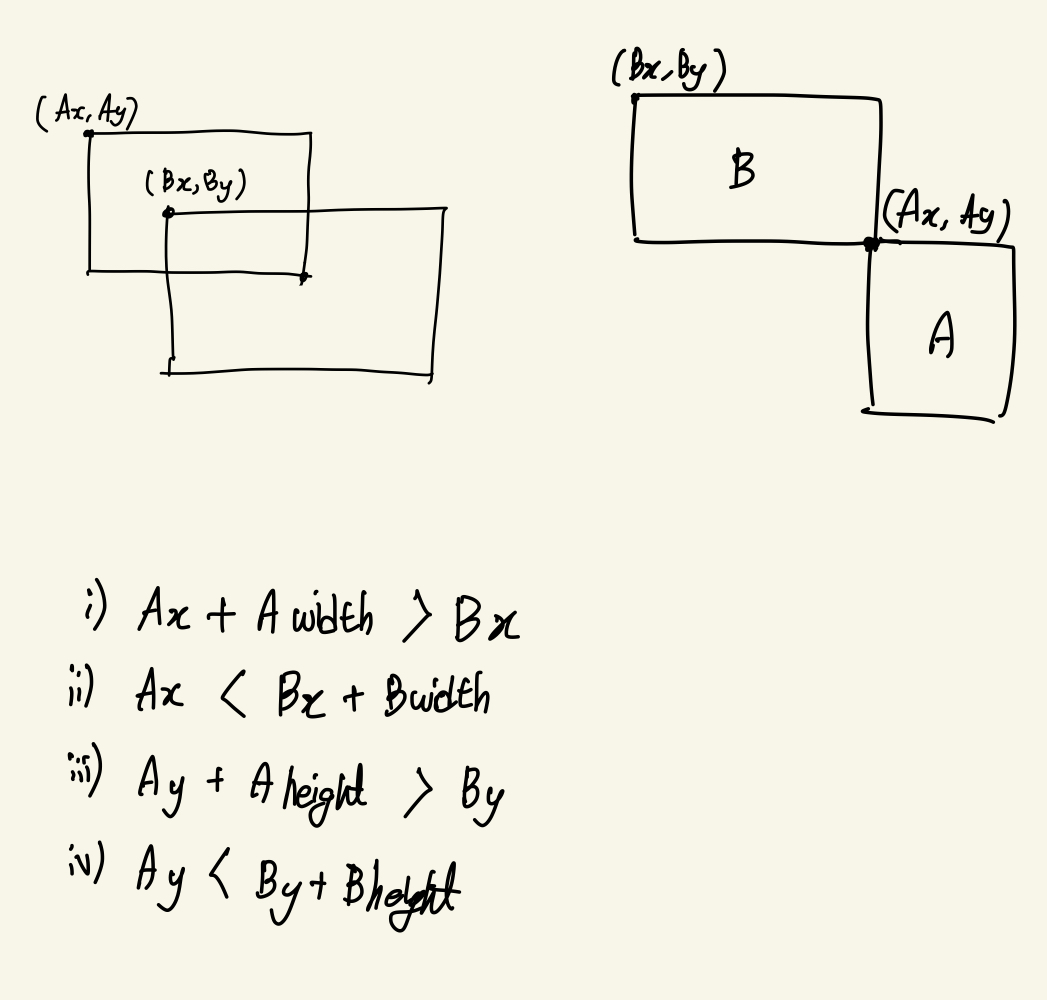 (Ax, Ay)
(Bx, By)
(Bx, By)
B
(Ax, Ay)
A
i) Ax + A width > Bx
ii) Ax < Bx + Bwidth
iii) Ay + A height > By
iv) Ay < By + Bheight